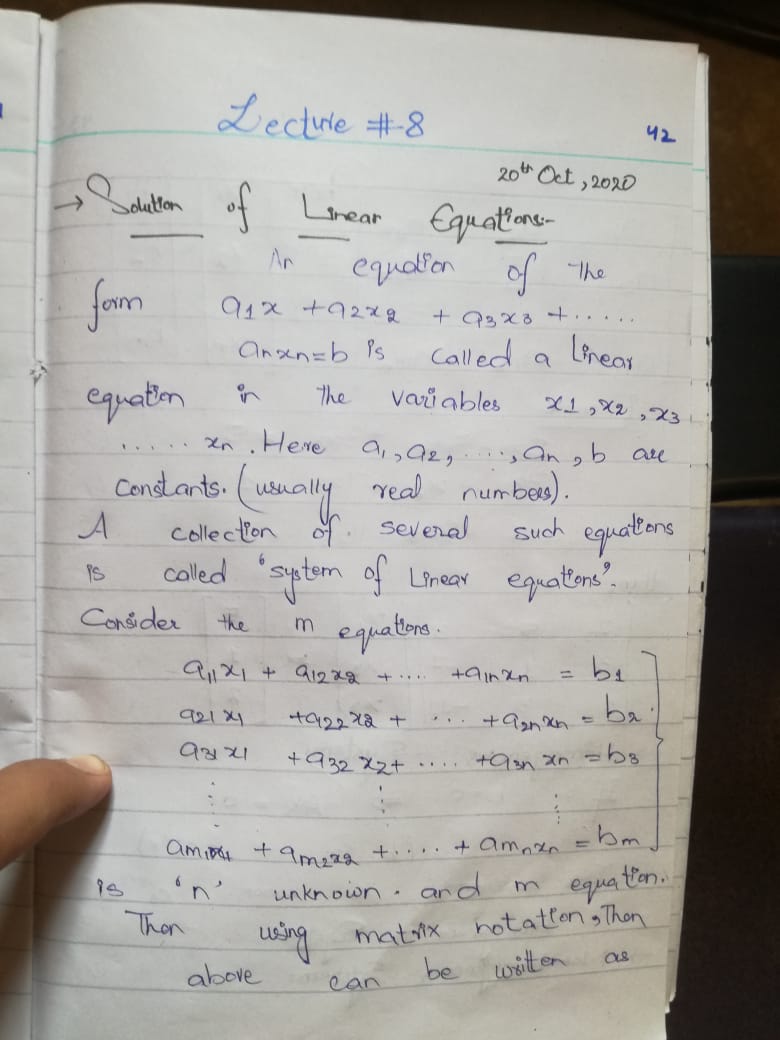 Lecture #-8
42
20th Oct, 2020
→ Solution of Linear Equations:-
An equation of the
form a1x + a2x2 + a3x3 + ......
anxn=b is called a Linear
equation in the variables x1, x2, x3
...... xn. Here a1, a2, ....., an, b are
constants. (usually real numbers).
A collection of several such equations
is called 'system of Linear equations'.
Consider the m equations.
a11x1 + a12x2 + .... +a1nxn = b1
a21x1 +a22x2 + ... +a2nxn = b2
a31x1 +a32x2+ .... +a3nxn = b3
⋮ ⋮ ⋮
am1x1 + am2x2 + .... + amnxn = bm
is 'n' unknown. and m equation.
Then using matrix notation, Then
above can be written as